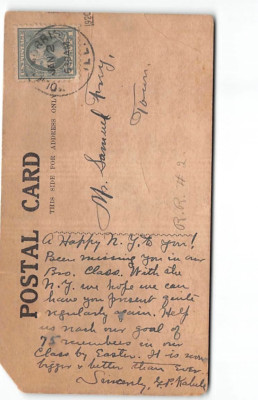 POSTAL CARD
THIS SIDE FOR ADDRESS ONLY
JAN 2
ILL.
Mr. Samuel
Town.
R.R. # 2
A Happy N.Y. to you!
Been missing you in our
Bro. Class. With the
N.Y. we hope we can
have you present quite
regularly again. Help
us reach our goal of
75 members in our
Class by Easter. It is now
bigger & better than ever.
Sincerely,